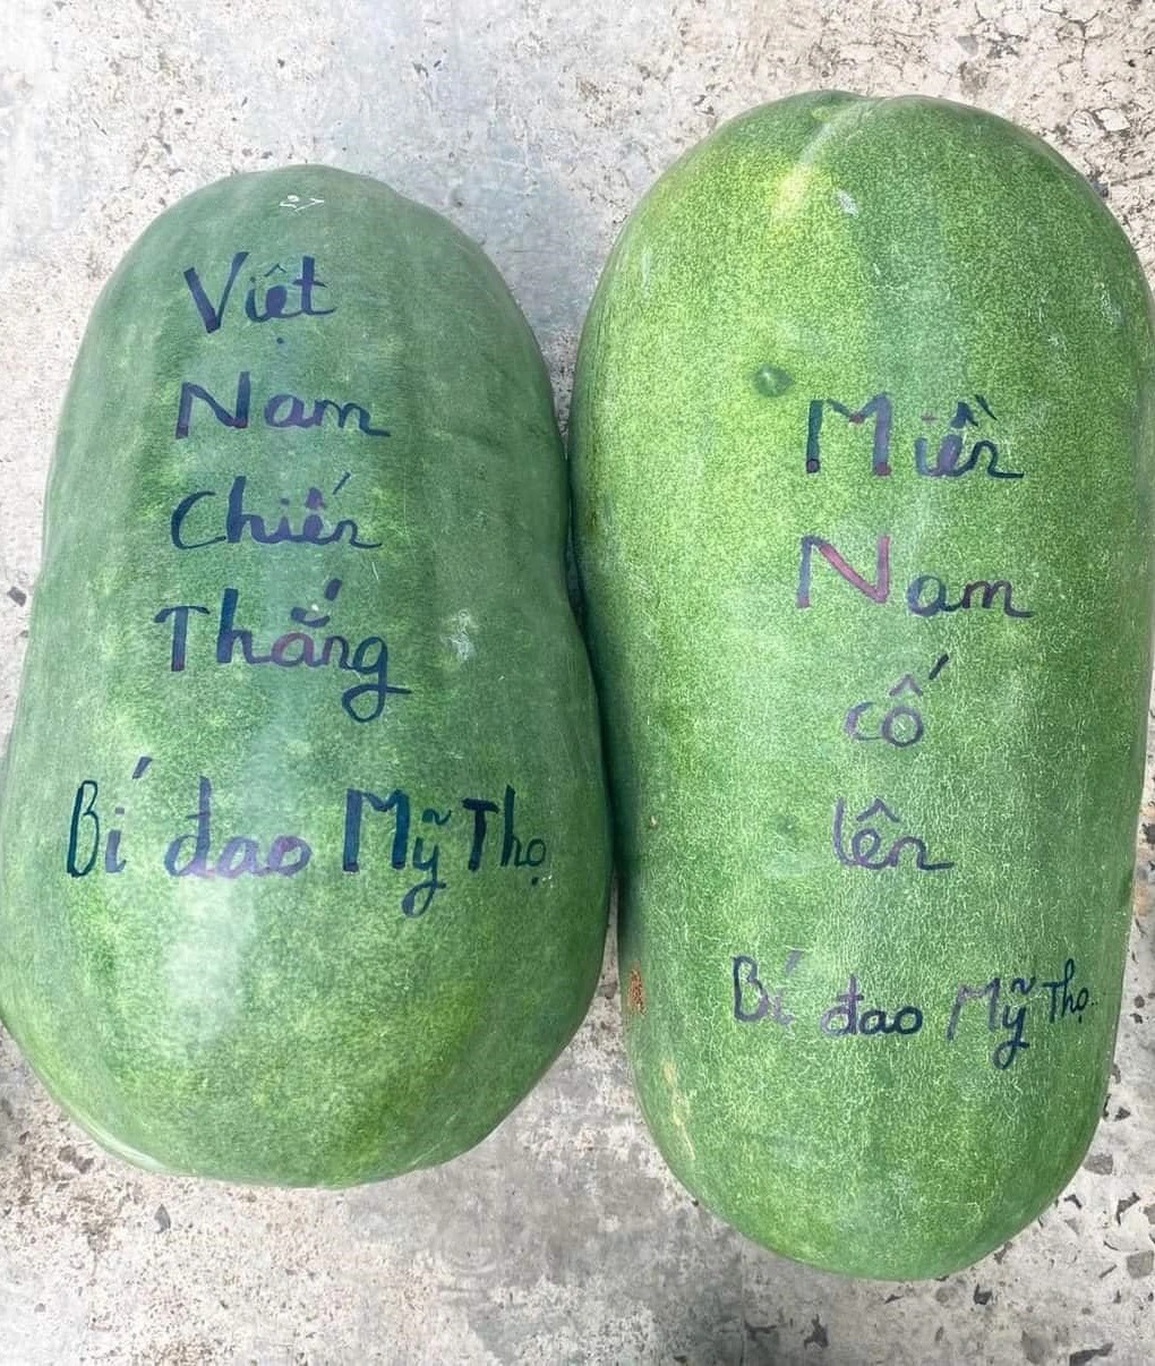 Việt
Nam
Chiến
Thắng
Bí đao Mỹ Thọ
Miền
Nam
cố
lên
Bí đao Mỹ Thọ